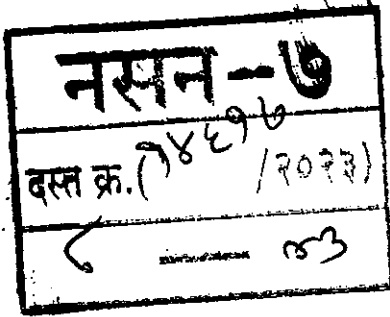 नसन-७
दस्त क्र.(१४६१७ /२०२३)
८ — ४३